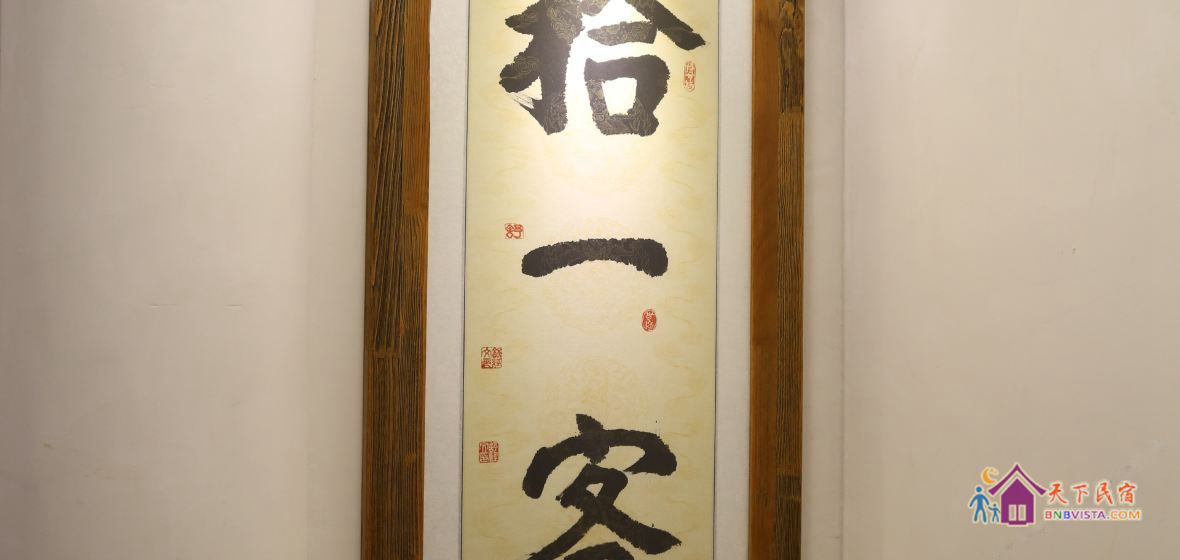 拾
一
客
舒
天下民宿
BNBVISTA.COM